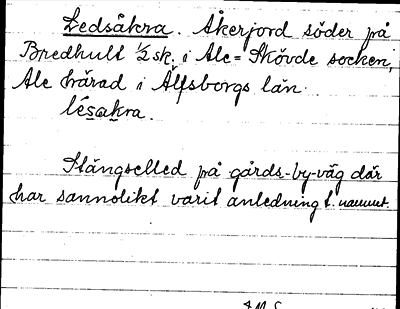 Ledsåkra. Åkerjord söder på
Bredhult ½ sk. i Ale=Skövde socken,
Ale härad i Älfsborgs län.
lésakra.
Stängselled på gårds-by-väg där
har sannolikt varit anledning t. namnet.